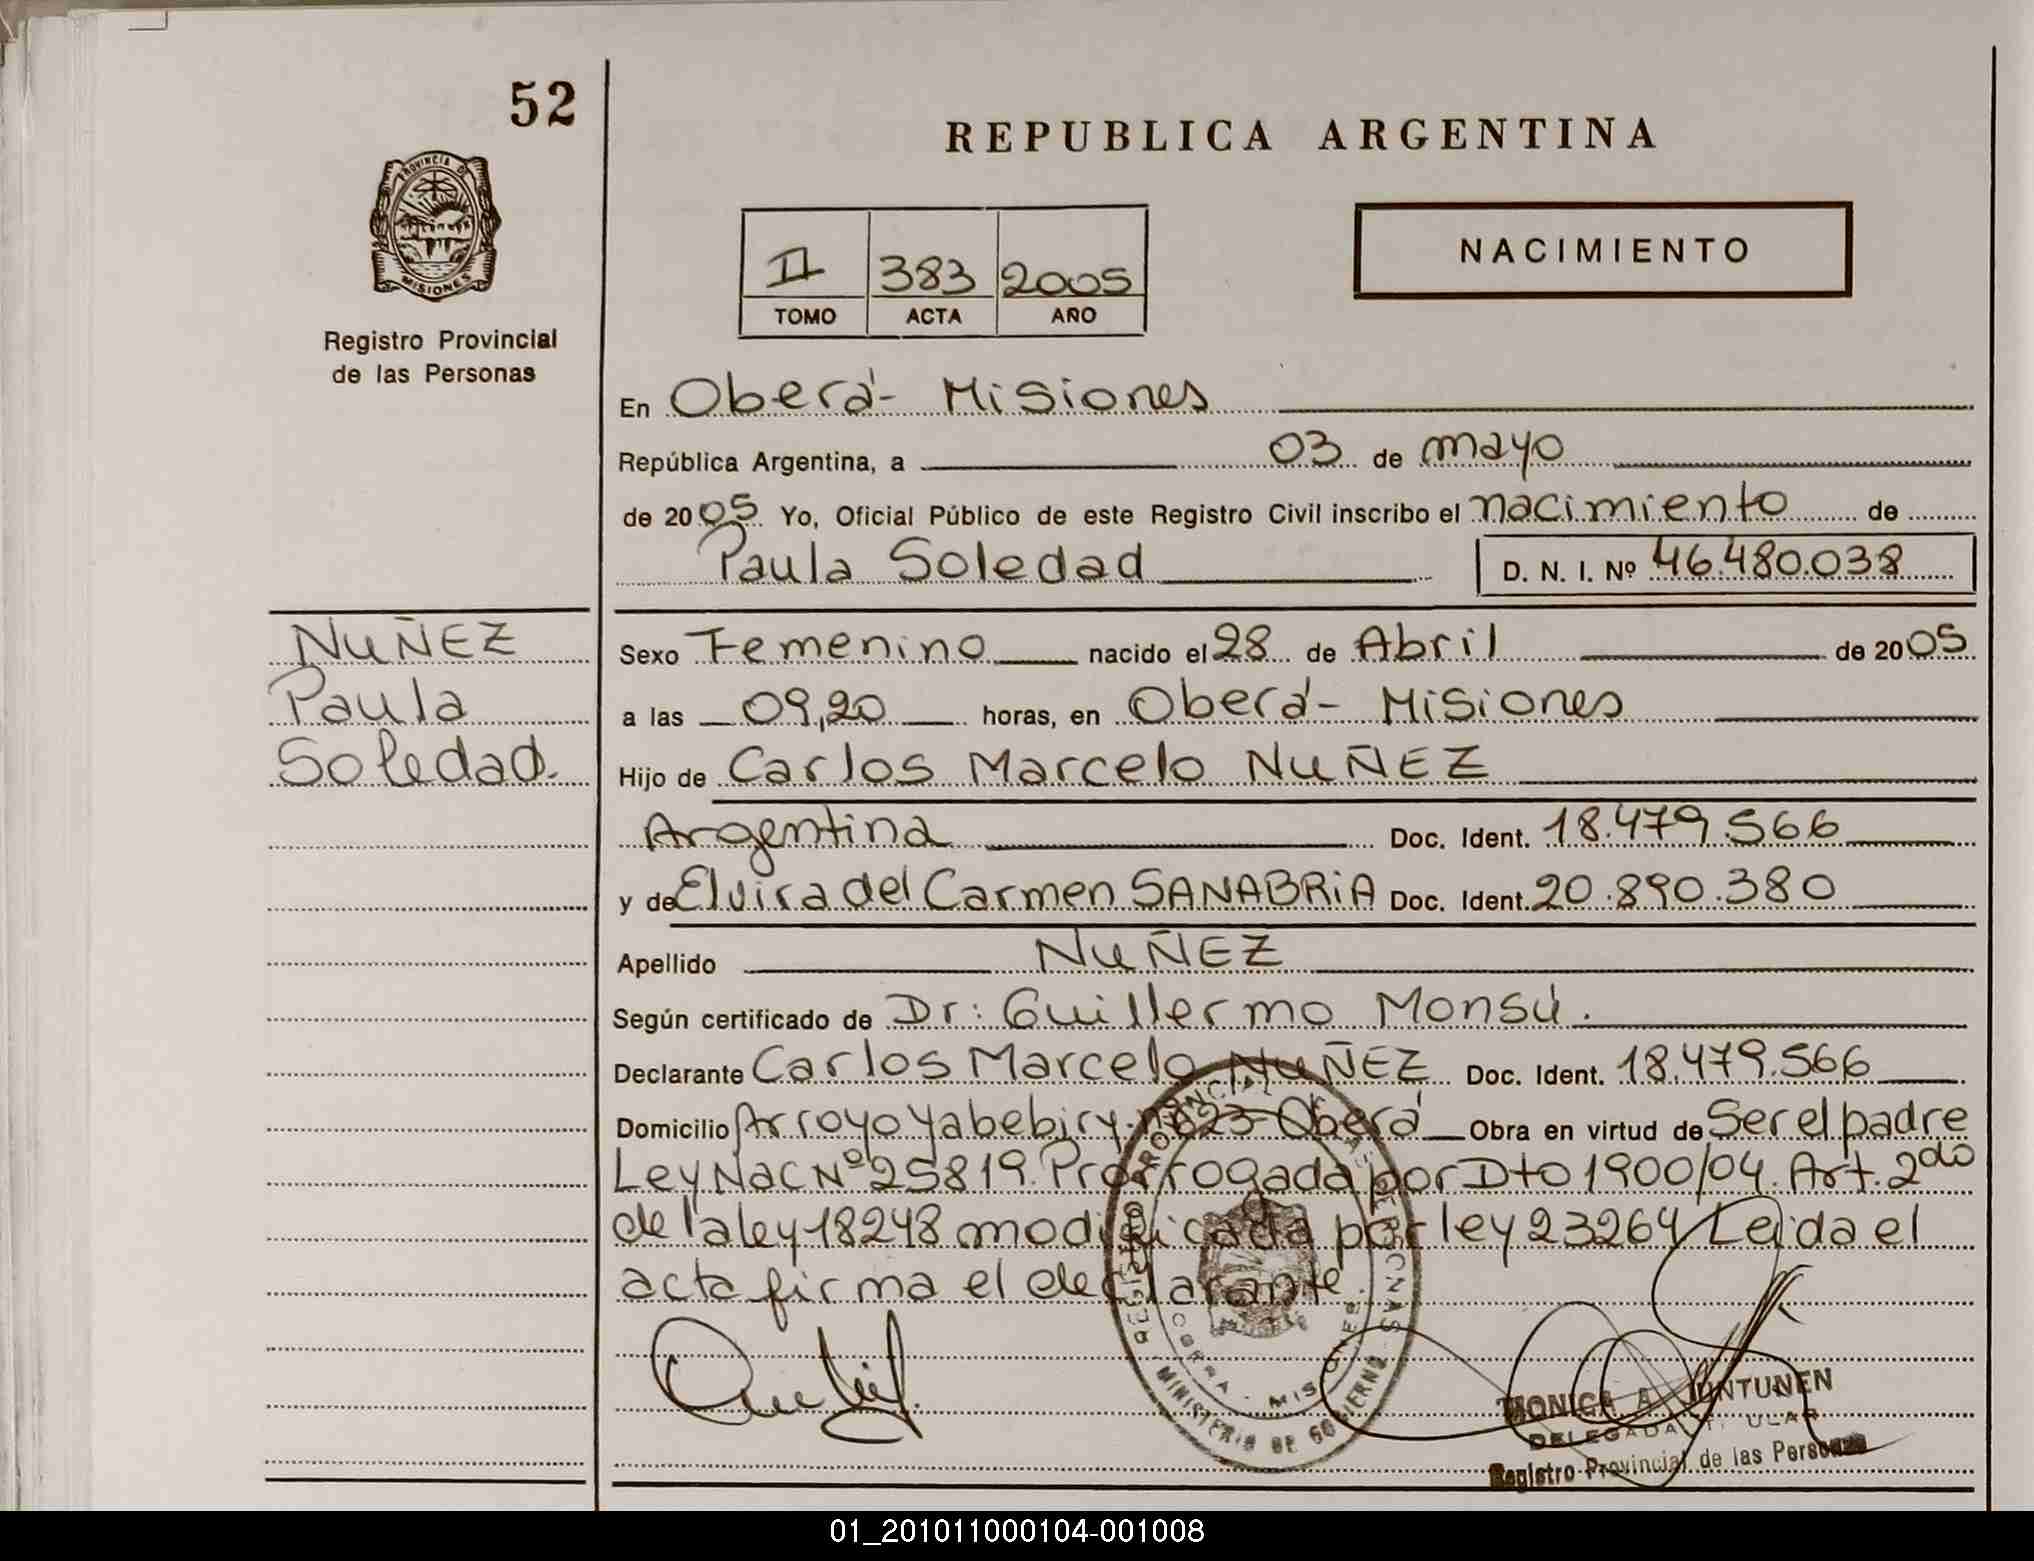 52
REPUBLICA ARGENTINA
PROVINCIA DE
MISIONES
Registro Provincial
de las Personas
NACIMIENTO
II 383 2005
TOMO ACTA AÑO
En Oberá - Misiones
República Argentina, a 03 de mayo
de 2005 Yo, Oficial Público de este Registro Civil inscribo el nacimiento de
Paula Soledad D. N. I. Nº 46.480.038
NUÑEZ
Paula
Soledad.
Sexo Femenino nacido el 28 de Abril de 2005
a las 09,20 horas, en Oberá - Misiones
Hijo de Carlos Marcelo NUÑEZ
Argentina Doc. Ident. 18.479.566
y de Elvira del Carmen SANABRIA Doc. Ident. 20.890.380
Apellido NUÑEZ
Según certificado de Dr: Guillermo Monsú.
Declarante Carlos Marcelo NUÑEZ Doc. Ident. 18.479.566
Domicilio Arroyo Yabebiry nº 823 Oberá Obra en virtud de Ser el padre
Ley Nac Nº 25819. Prorrogada por Dto 1900/04. Art. 2do
de la ley 18248 modificada por ley 23264 Leida el
acta firma el declarante.
REGISTRO PROVINCIAL DE LAS PERSONAS
OBERA - MISIONES
MINISTERIO DE GOBIERNO
MONICA A. JUNTUNEN
DELEGADA TITULAR
Registro Provincial de las Personas
01_201011000104-001008